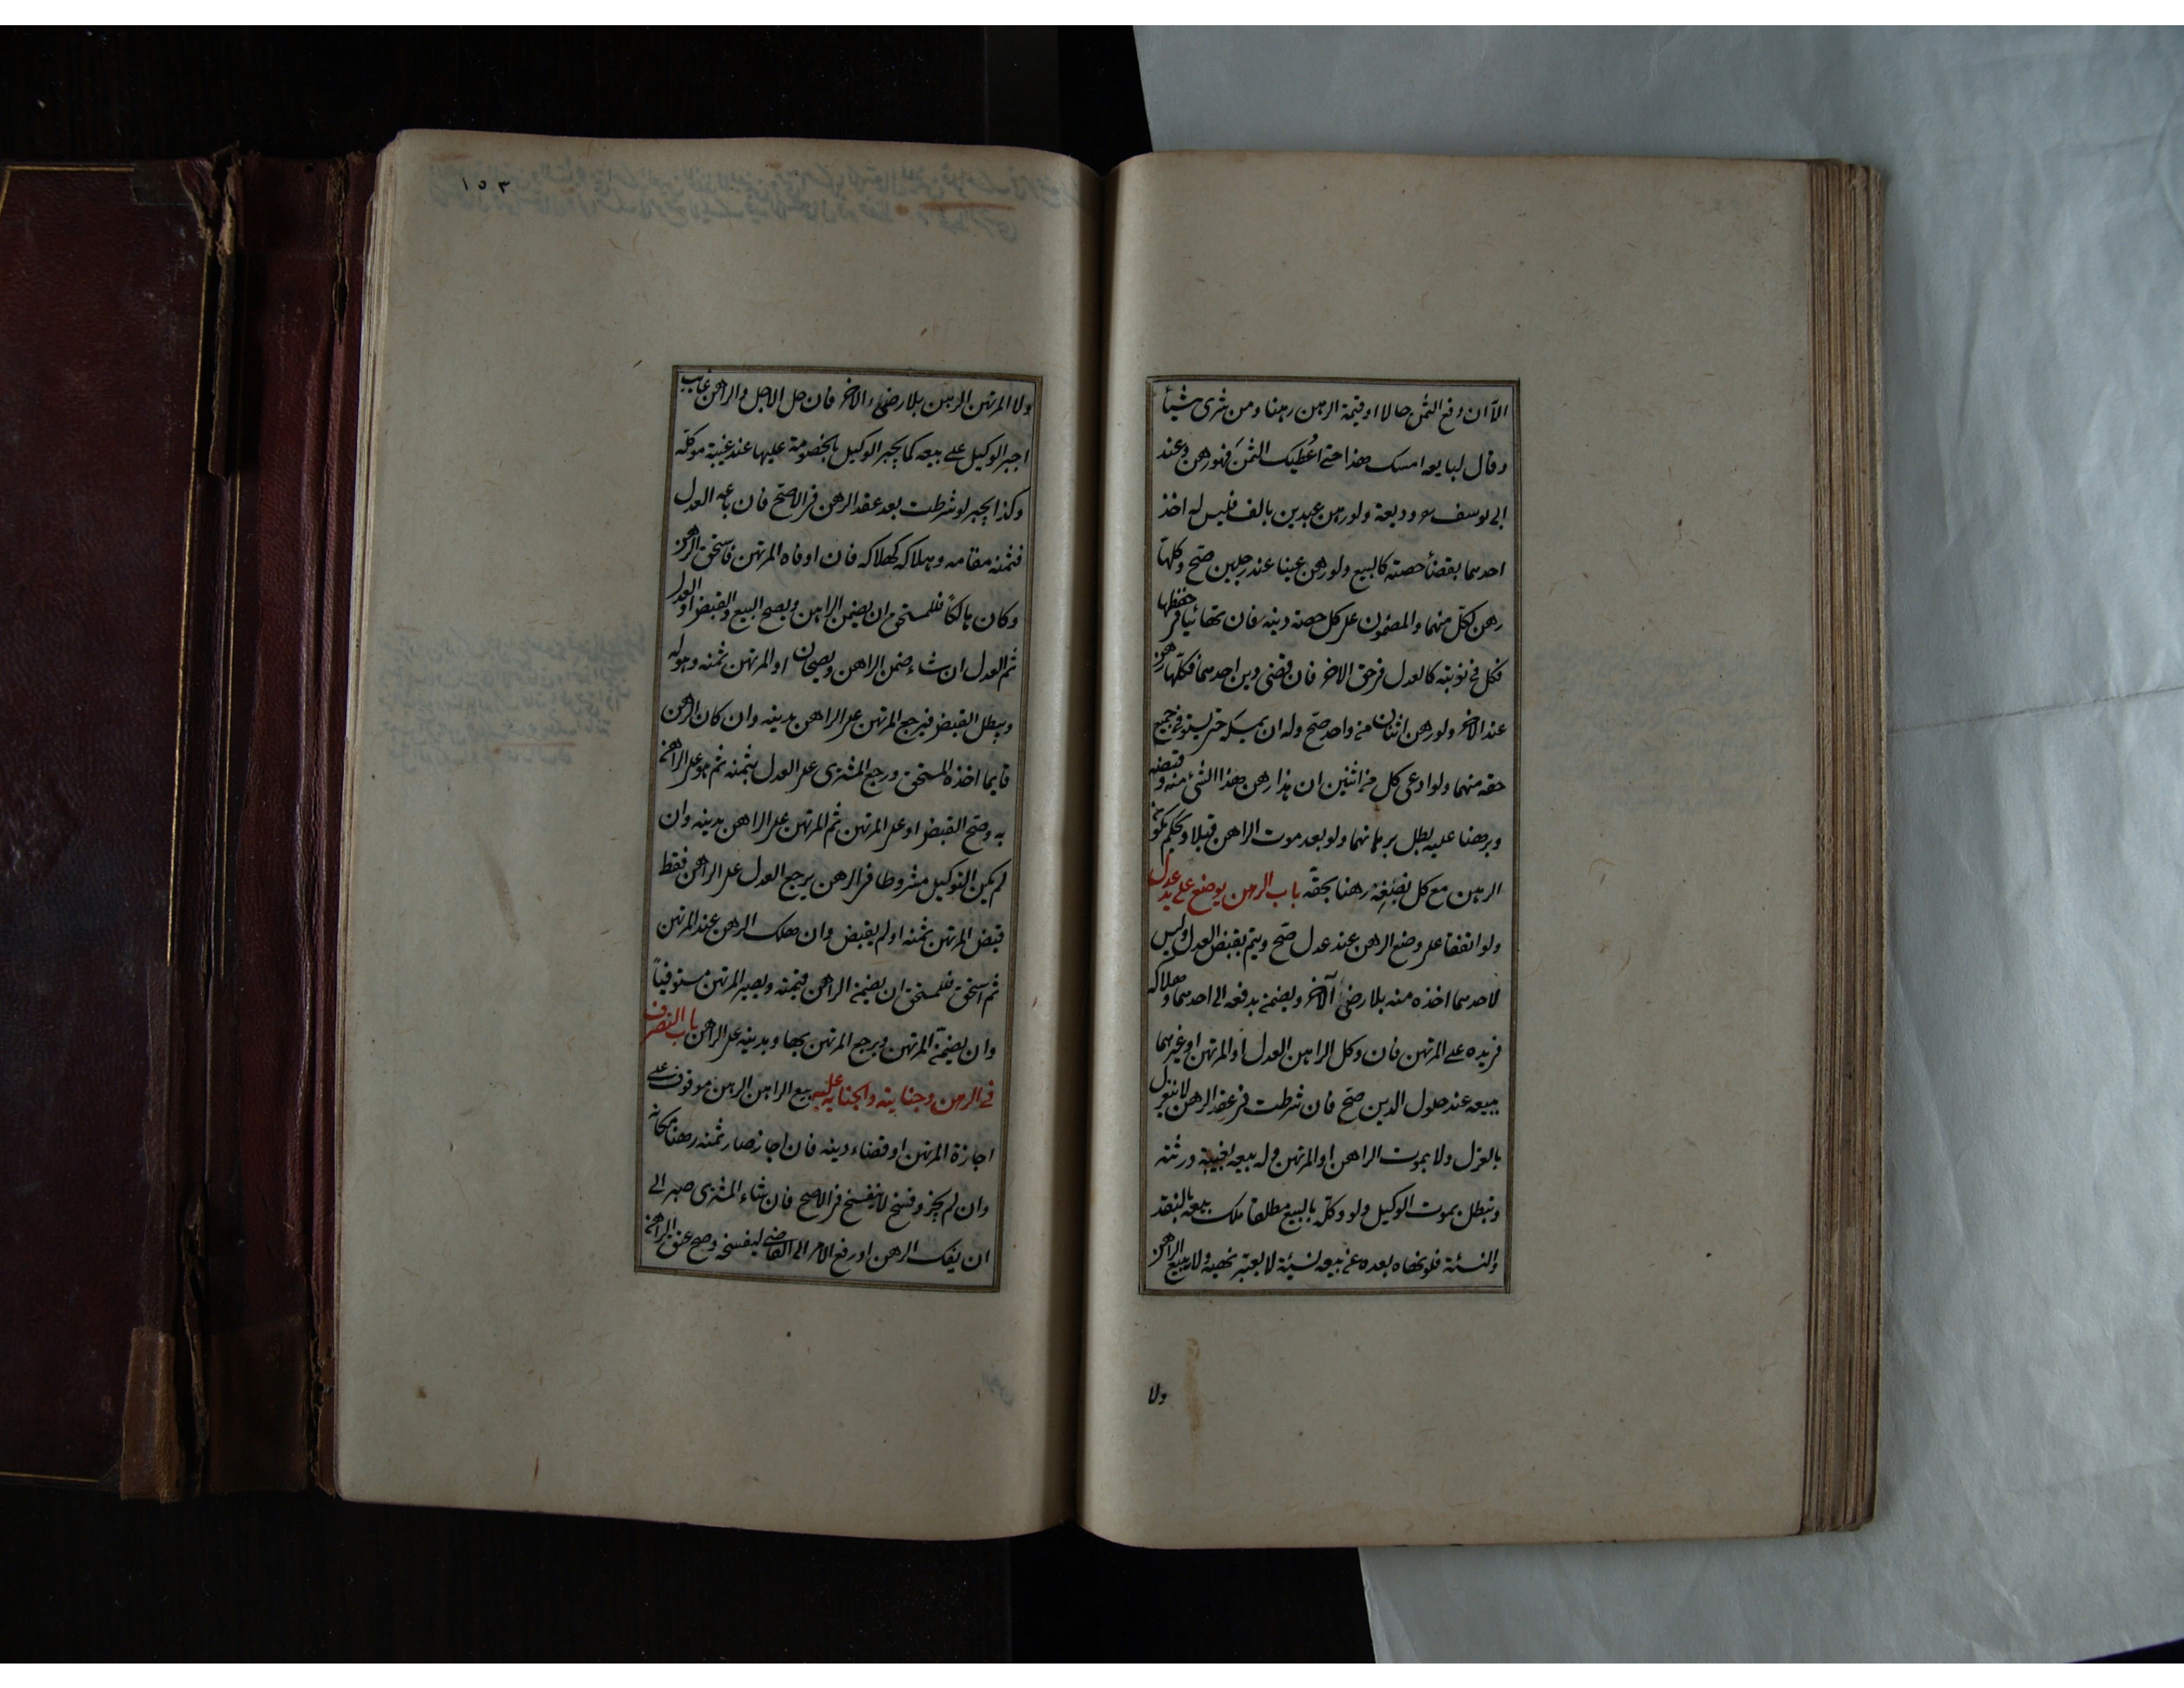 الا ان وقع الثمن حالا او قيمة الرهن رهنا ومن شرى شيئا
وقال لبايعه امسك هذا حتى اعطيك الثمن فهو رهن وعند
ابى يوسف ره وديعة ولو رهن عبدين بالف فليس له اخذ
احدهما بقضأ حصته كالبيع ولو رهن عينا عند رجلين صح وكلها
رهن لكل منهما والمضمون على كل حصة دينه فان تهائيا فى حفظها
فكل فى نوبته كالعدل فى حق الاخر فان قضى دين احدهما فكلها رهن
عند الاخر ولو رهن اثنان من واحد صح وله ان يمسكه حتى يستوفى جميع
حقه منهما ولو ادعى كل من اثنين ان هذا رهن هذا الشئ منه وقبضه
وبرهنا عليه بطل برهانهما ولو بعد موت الراهن قبلا ويحكم بكون
الرهن مع كل نصفه رهنا بحقه باب الرهن يوضع على يد عدل
ولو اتفقا على وضع الرهن عند عدل صح ويتم بقبض العدل وليس
لاحدهما اخذه منه بلا رضى الآخر ويضمن بدفعه الى احدهما وهلاكه
فى يده على المرتهن فان وكل الراهن العدل او المرتهن او غيرهما
ببيعه عند حلول الدين صح فان شرطت فى عقد الرهن لا ينعزل
بالعزل ولا بموت الراهن او المرتهن وله بيعه بغيبة ورثته
وتبطل بموت الوكيل ولو وكله بالبيع مطلقا ملك بيعه بالنقد
والنسئة فلو نهاه بعده عن بيعه نسيئة لا يعتبر نهيه ولا يبيع الراهن
ولا
١٥٣
ولا المرتهن الرهن بلا رضاء الاخر فان حل الاجل والراهن غايب
اجبر الوكيل على بيعه كما يجبر الوكيل بالخصومة عليها عند غيبة موكله
وكذا يجبر لو شرطت بعد عقد الرهن فى الاصح فان باعه العدل
فثمنه مقامه وهلاكه كهلاكه فان اوفاه المرتهن فاستحق الرهن
وكان هالكا فللمستحق ان يضمن الراهن ويصح البيع والقبض او العدل
ثم العدل ان شاء ضمن الراهن ويصحان او المرتهن ثمنه وهو له
ويبطل القبض فيرجع المرتهن على الراهن بدينه وان كان الرهن
قايما اخذه المستحق ورجع المشترى على العدل بثمنه ثم هو على الراهن
به وصح القبض او على المرتهن ثم المرتهن على الراهن بدينه وان
لم يكن التوكيل مشروطا فى الرهن يرجع العدل على الراهن فقط
قبض المرتهن ثمنه او لم يقبض وان هلك الرهن عند المرتهن
ثم استحق فللمستحق ان يضمن الراهن قيمته ويصير المرتهن مستوفيا
وان يضمن المرتهن ويرجع المرتهن بها وبدينه على الراهن باب التصرف
فى الرهن وجنايته والجناية عليه بيع الراهن الرهن موقوف على
اجازة المرتهن او قضاء دينه فان اجاز صار ثمنه رهنا مكانه
وان لم يجز وفسخ لا ينفسخ فى الاصح فان شاء المشترى صبر الى
ان يفك الرهن او رفع الامر الى القاضى ليفسخه وصح عتق الراهن